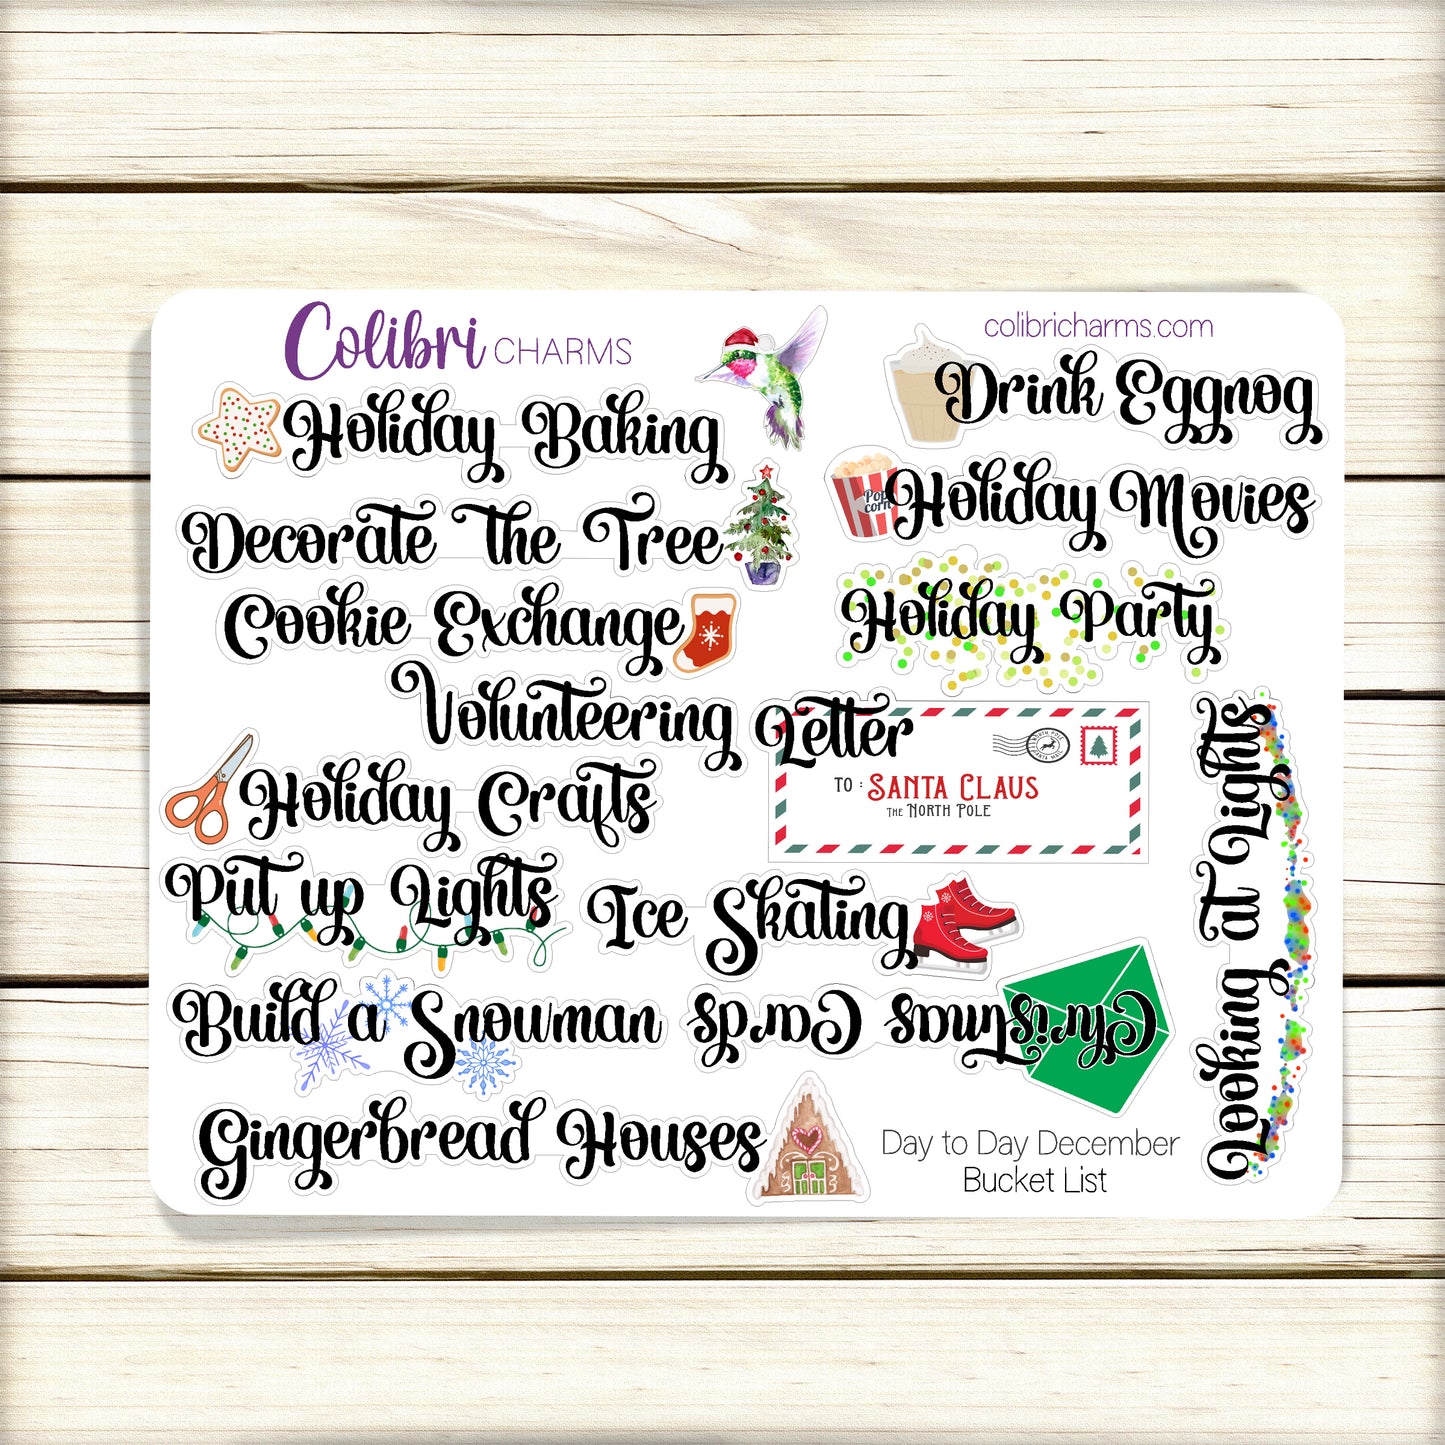 Colibri CHARMS
colibricharms.com
Holiday Baking
Drink Eggnog
Decorate the Tree
Pop
corn
Holiday Movies
Cookie Exchange
Holiday Party
Volunteering
Letter
NORTH POLE
SANTA MAIL
TO : SANTA CLAUS
THE NORTH POLE
Holiday Crafts
Looking at Lights
Put up Lights
Ice Skating
Build a Snowman
Christmas Cards
Gingerbread Houses
Day to Day December
Bucket List